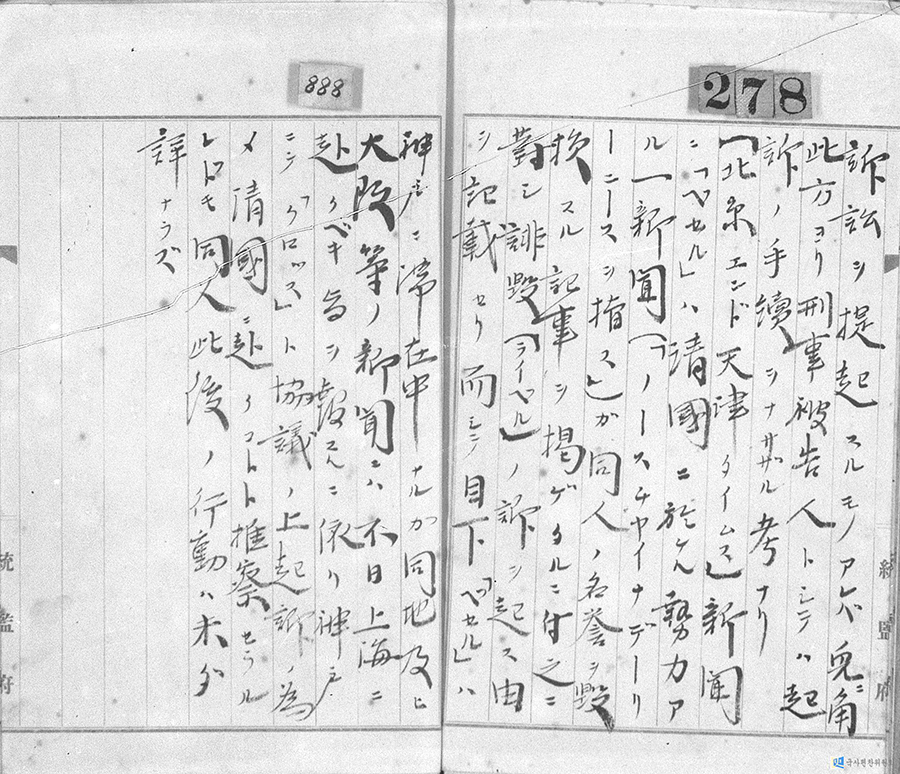 888
278
訴訟ヲ提起スルモノアレバ兎ニ角
此方ヨリ刑事被告人トシテハ起
訴ノ手續ヲナサザル考ナリ
「北京エンド天津タイムス」新聞
ニ「ベセル」ハ清國ニ於ケル勢力ア
ル一新聞(「ノースチヤイナデーリ
ーニースヲ指ス」)カ同人ノ名誉ヲ毀
損スル記事ヲ掲ゲタルニ付之ニ
對シ誹毀(「ライベル」)ノ訴ヲ起ス由
ヲ記載セリ而シテ目下「ベセル」ハ
神戸ニ滞在中ナルカ同地及ヒ
大阪等ノ新聞ニハ不日上海ニ
赴クベキ旨ヲ報スルニ依リ神戸
ニテ「クロッス」ト協議ノ上起訴ノ為
メ清國ニ赴クコトト推察セラル
レトモ同人此後ノ行動ハ未ダ
詳ナラズ
統監府
統監府
국사편찬위원회